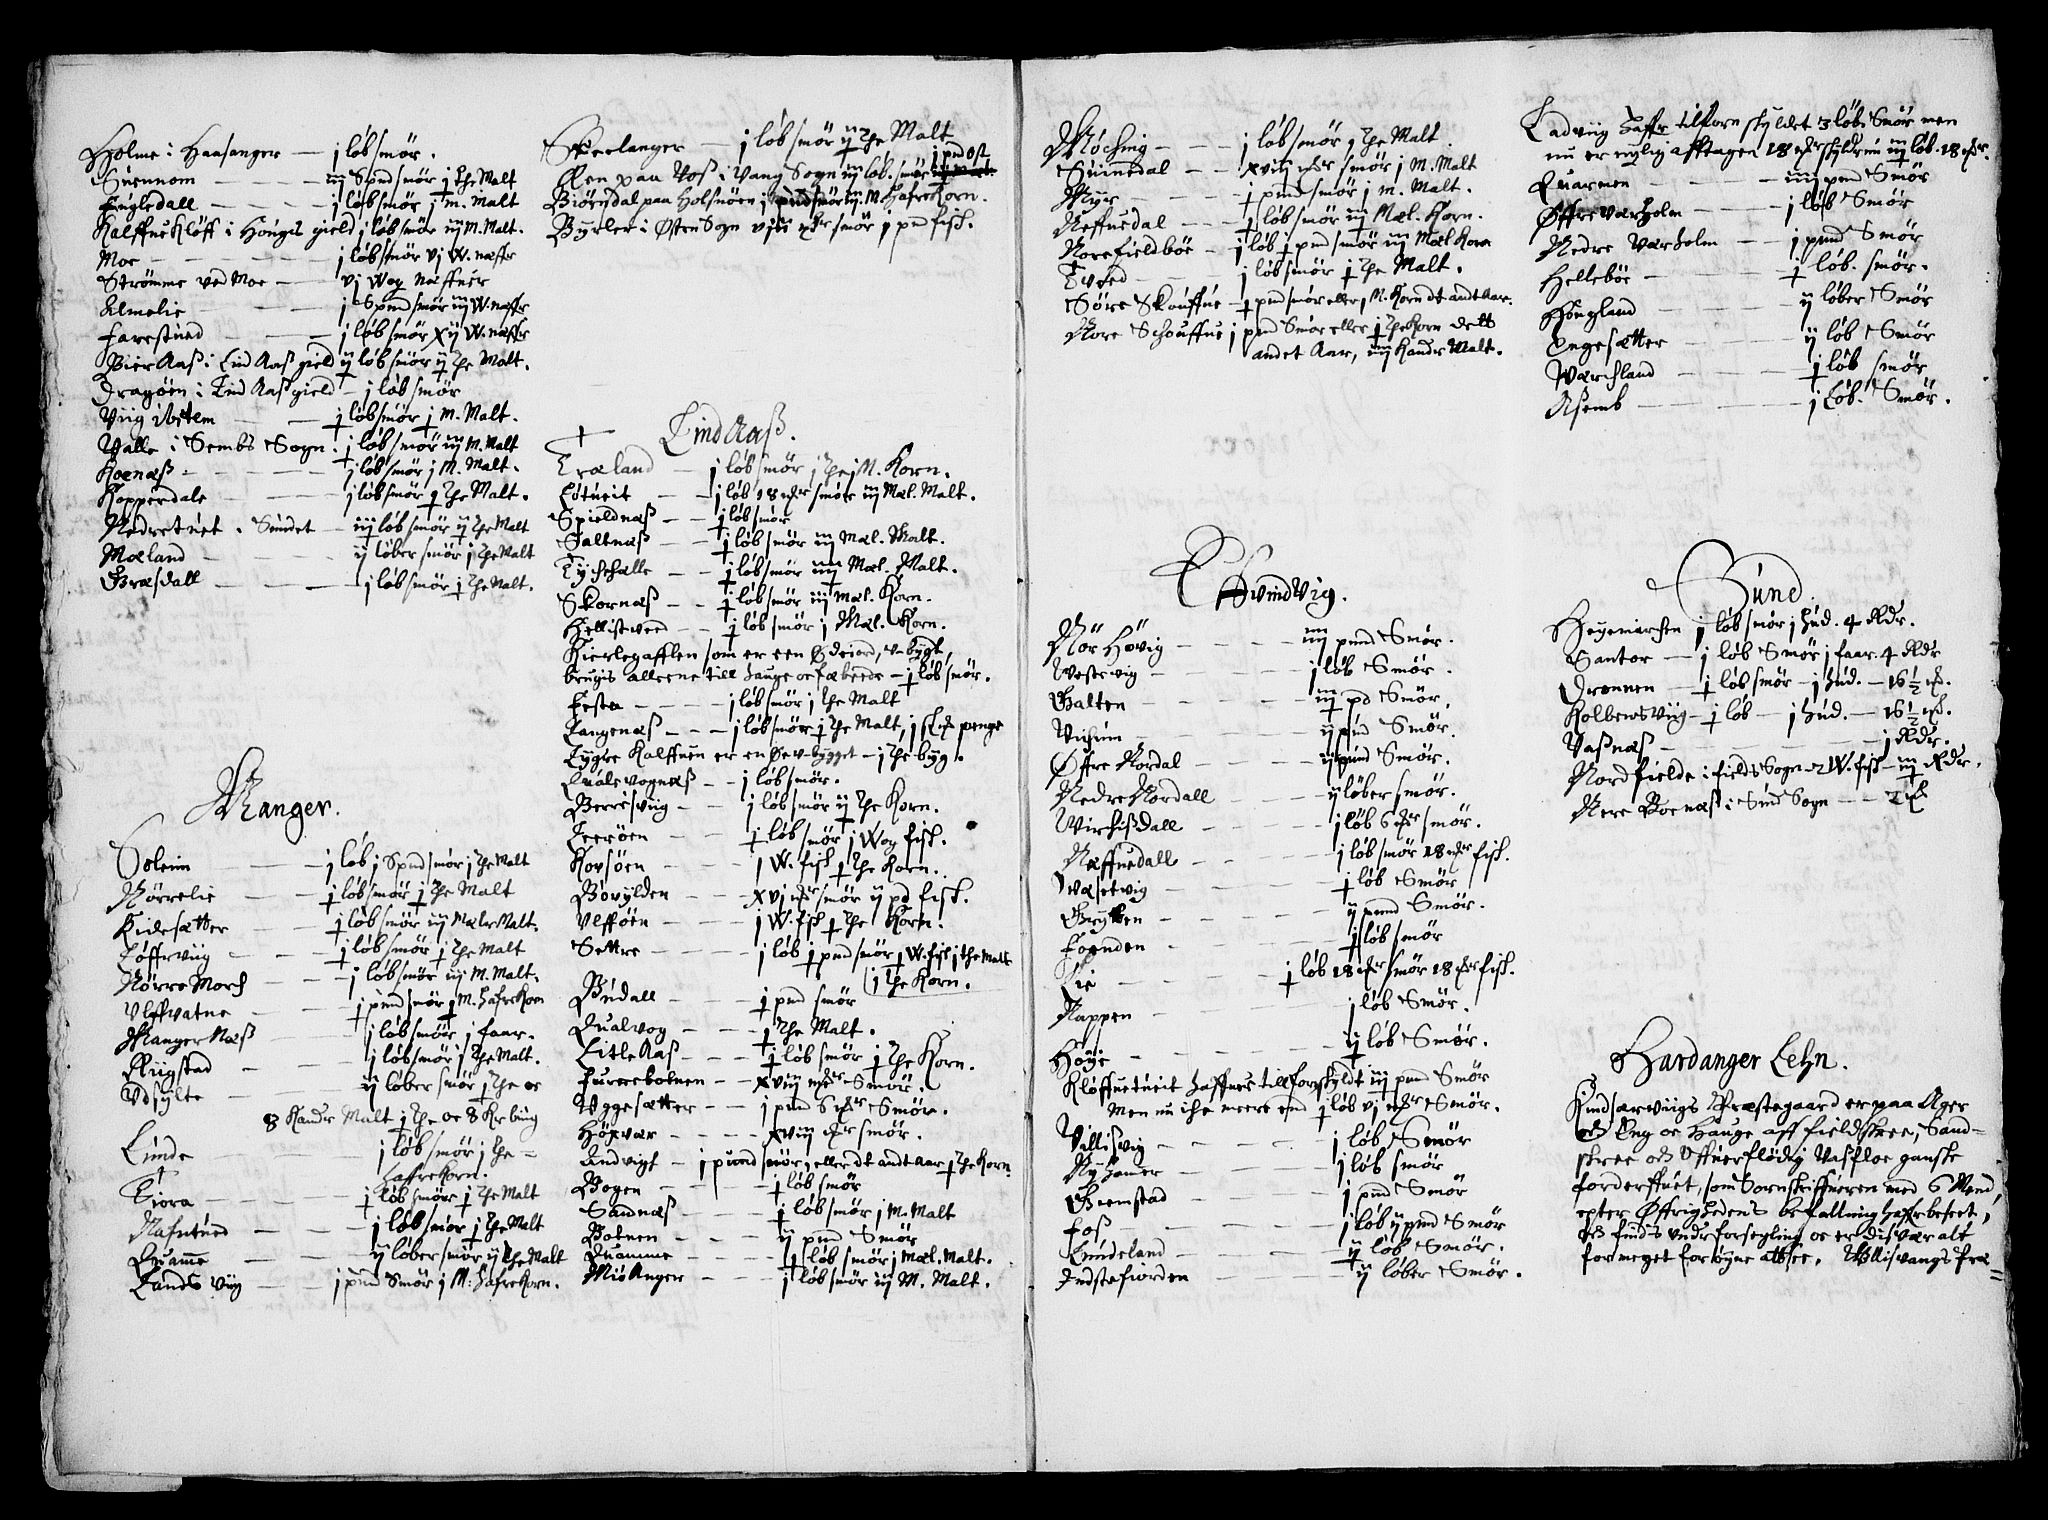 Holme i Haasanger — j løb smør.
Suennom — iij Spnd smør j the Malt
Engledall — j løb smør j m. Malt
Kalffue Kløff i Hougs gield j løb smør iij M. Malt.
Moe — j løb smør vj W. næffr
Strømme ved Moe — vj Wog Næffuer
Almelie — j Spnd smør iij W. næffr
Farestued — j løb smør xij W. næffr
Bier Aaß i Lind Aaß gield ij løb smør ij the Malt.
Dragøen i Lind Aaß gield — j løb smør
Viig — j løb smør j M. Malt.
Valle i Sembs Sogn. j løb smør iij M. Malt
Koenæß — j løb smør j M. Malt.
Kopperdale — j løb smør j the Malt.
Nedretuet i Sundet — iij løb smør ij the Malt
Mæland — ij løber smør j the Malt
Græsdall — j løb smør j the Malt.
Manger.
Soleim — j løb j Spnd smør j the Malt
Nørrelie — j løb smør j the Malt
Kidesætter — j løb smør iij Mæler Malt.
Tøffrviig — j løb smør j the Malt
Nørre Morch — j løb smør iij M. Malt.
Vlffvatne — j pund smør j M. hafre Korn
Manger Næß — j løb smør j faar.
Rijgstad — j løb smør j the Malt.
Vdsylte — ij løber smør j the oc
8 Kander Malt j the oc 8 Kr byug
Linde — j løb smør j the —
haffrekorn.
Tiora — j løb smør j the Malt
Nafntued — j løb smør j the Malt
Quamme — ij løber smør ij the Malt
Lands viig — j pnd Smør j M. hafre Korn.
Skeelanger — j løb smør ij the Malt
Een paa Vos i Vang Sogn iij løb. smør j pnd ost
Biørsdal paa Holsnøen j pnd smør iij M. Hafre Korn.
Byrler i Østen Sogn viij mkr smør j pnd fisk.
Lind Aaß.
Træland — j løb smør j the j M. Korn.
Løtueit — j løb 18 mkr smør iij Mæl. Malt.
Spieldnæß — j løb smør
Saltnæß — j løb smør iij Mæl. Malt.
Tyschehalle — j løb smør iiij Mæl. Malt.
Skornæß — j løb smør iij Mæl. Korn.
Hellistveed — j løb smør j Mæl. Korn.
Kierlegafflen som er een Ødeiord, v-bygt,
brugis alleene till hauge oc fæbeede — j løb smør.
Festa — j løb smør j the Malt
Tangenæß — j løb smør j the Malt, penge
Lygre Kalffuen er en Øe v-bygget — j the byg.
Quale vognæß — j løb smør.
Berresviig — j løb smør ij the Korn.
Leerøen — j løb smør j Wog fisk.
Kovsøen — j W. fisk j the Korn.
Bøvylden — xvj mkr smør ij pd fisk.
Vlfføen — j W. fisk j the Korn.
Settre — j løb j pnd smør j W. fisk j the Malt
j the Korn.
Budall — j pnd smør
Qualvog — j the Malt.
Litle Aas — j løb smør j the Korn.
Furrebotnen — xviij mkr Smør.
Vggesætter — j pnd 6 mkr Smør.
Høxvær — xviij mkr smør.
Andvigt — j pund smør, eller dt andt aar j the Korn
Bogen — j løb smør
Sandnæß — j løb smør j M. Malt
Botnen — ij pnd Smør
Quamme — j løb smør j Mæl. Malt.
Miøanger — j løb smør iij M. Malt.
Møching — j løb smør j the Malt.
Suinedal — xviij mkr smør j M. Malt
Myr — j pnd smør j M. Malt.
Neffuedal — j løb smør iij Mæl. Korn.
Norefieldbøe — j løb j pnd smør iij Mæl Korn
Tveed — j løb smør j the Malt.
Søre Skouffue — j pnd smør eller j M. Korn dt andt Aar.
Nore Schouffue j pnd Smør eller j the Korn dett
andet Aar, iiij Kander Malt.
Evindvig.
Nør Høvig — iij pund Smør.
Vestrevig — j løb Smør.
Galten — iij pd Smør.
Vichum — ij pnd Smør.
Øffre Nordal — ij pund Smør.
Nedre Nordall — ij løber smør.
Wirchißdall — j løb 6 mkr smør.
Næffuedall — j løb smør 18 mkr fisk.
— j løb Smør
— ij pund Smør.
Fognden — j løb smør
Lie — j løb 18 mkr smør 18 mkr fisk.
Nappen — j løb Smør.
Høye — ij løb Smør.
Kløffuetueit haffuer till forn skyldt iij pund Smør
Men nu iche meere end j løb vj mkr Smør.
Villisvig — j løb Smør
Nyhamer — j løb smør
Grimstad — j pnd Smør
Foß — j løb ij pnd Smør
Lundeland — ij løb Smør.
Indstefiorden — ij løber Smør.
Ladviig haffr tilforn skyldet 3 løb. Smør men
nu er nylig afftagen 18 mkr skyldr nu iij løb. 18 mkr.
Quarmen — iiij pnd Smør
Øffre Værholm — j løb Smør
Nedre Værholm — j pund Smør
Hellebøe — j løb. smør.
Hougland — ij løber Smør
Engesætter — ij løb Smør
Værchland — j løb smør
Aasemb — j Løb. Smør.
Sund.
Heyemarchen j løb smør j hud. 4 Rdr.
Santor — j løb Smør j faar. 4 Rdr
Drønnen — j løb smør — j hud. — 16 ½ mk.
Kolbensviig — j løb — j hud. — 16 ½ mk.
Vaßnæß — j Rdr.
Nordfielde i fields Sogn 2 W. fisk — iij Rdr.
Nere Boenæß i Sund Sogn — 2 mk
Hardanger Lehn.
Kindsarviigs Præstegaard er paa Ager
och Eng oc Hauge aff fieldskree, Sand-
skree och Offuerflødig Vasfloe ganske
forderffuet, som Sornskriffueren med 6 Mend,
epter Øffrighedens befalning haffr beseet,
och finds vndr forsegling oc er disvær alt
formeget forøyne atbsee. Vllisvangs Præ=